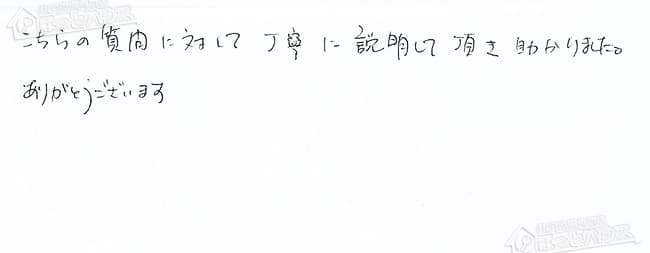 こちらの質問に対して丁寧に説明して頂き助かりました。
ありがとうございます